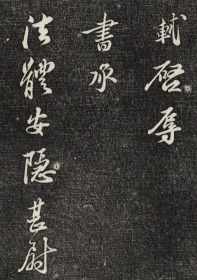 軾啓辱
書承
法體安隱甚尉